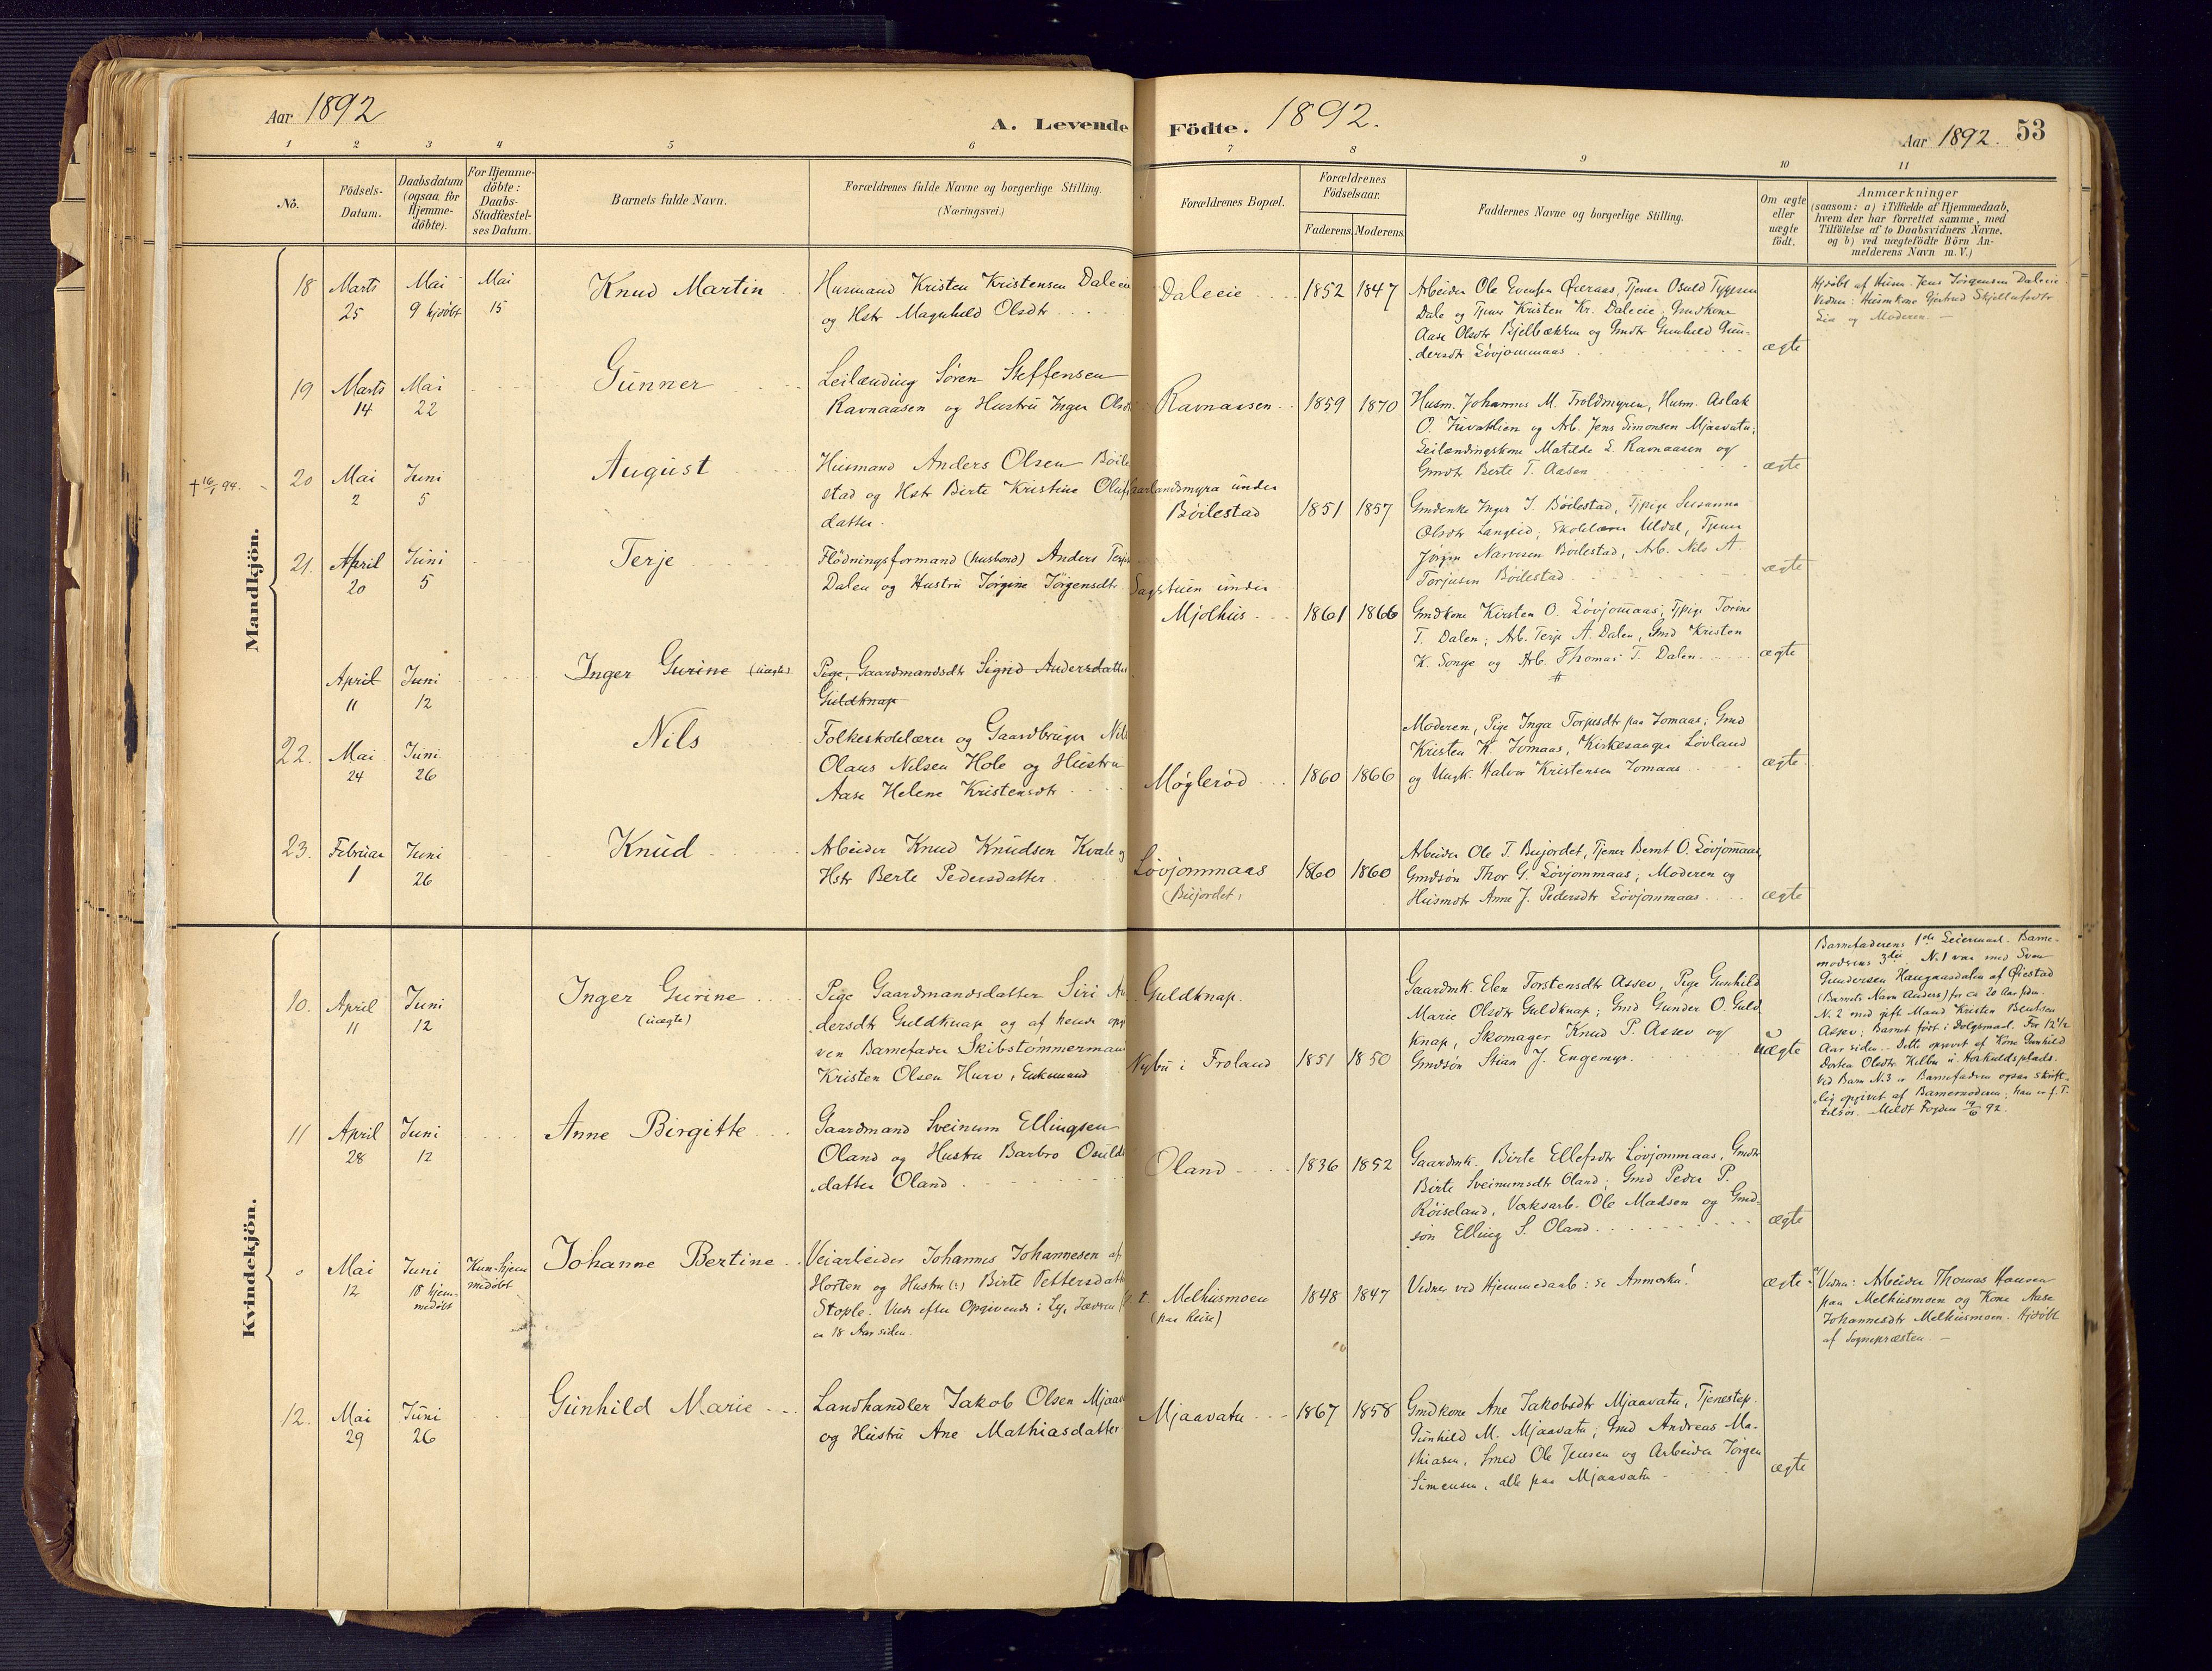 Aar 1892
A. Levende Födte. 1892.
Aar 1892. 53
1 2 3 4 5 6 7 8 9 10 11
No.
Födsels-
Datum.
Daabsdatum
(ogsaa for
Hjemme-
döbte).
For Hjemme-
döbte:
Daabs-
Stadfæstel-
ses Datum.
Barnets fulde Navn.
Forældrenes fulde Navne og borgerlige Stilling.
(Næringsvei.)
Forældrenes Bopæl.
Forældrenes
Födselsaar.
Faderens. Moderens.
Faddernes Navne og borgerlige Stilling.
Om ægte
eller
uægte
födt.
Anmærkninger
(saasom: a) i Tilfælde af Hjemmedaab,
hvem der har forrettet samme, med
Tilföielse af to Daabsvidners Navne,
og b) ved uægtefödte Börn An-
melderens Navn m. V.)
Mandkjön.
18
Marts
25
Mai
9 hjdöbt
Mai
15
Knud Martin
Husmand Kristen Kristensen Daleeie
og Hstr Magnhild Olsdtr
Daleeie
1852 1847
Arbeider Ole Evensen Øveraas, Tjener Osuld Tygesen
Dale og Tjener Kristen Kr. Daleeie, Gmdkone
Aase Olsdtr Bjelbækken og Gmdtr Gunhild Gun-
dersdtr Løvjommaas
ægte
Hjdöbt af Husm. Jens Jörgensen Daleeie
Vidner: Husmkone Gjertrud
Lia og Moderen. —
19
Marts
14
Mai
22
Gunner
Leilænding Sören Steffensen
Ravnaasen og Hustru Inger Olsdtr
Ravnaasen
1859 1870
Husm. Johannes M. Troldmyren, Husm. Aslak
O. og Arb. Jens Simonsen Mjaavatn;
Leilændingskone Matilde L. Ravnaasen og
Gmdtr Berte T. Aasen
ægte
† 16/1 94.
20
Mai
2
Juni
5
August
Husmand Anders Olsen Böile
stad og Hstr Birte Kristine Olufs
datter.
aarlandsmyra under
Böilestad
1851 1857
Gmdenke Inger J. Böilestad, Tjpige Susanna
Olsdtr Langeid, Skolelærer Uldal, Tjener
Jörgen Narvesen Böilestad, Arb. Nils A.
Torjusen Böilestad
ægte
21.
April
20
Juni
5
Terje
Flödningsformand (husbond) Anders Terjes
Dalen og Hustru Jörgine Jörgensdtr
Sagstuen under
Mjölhus
1861 1866
Gmdkone Kirsten O. Løvjomaas, Tjpige Torine
T. Dalen; Arb. Terje A. Dalen, Gmd Kristen
K. Songe og Arb. Thomas T. Dalen
ægte
April
11
Juni
12
Inger Gurine (uægte)
Pige, Gaardmandsdtr Signe Andersdatter
Guldknap
22.
Mai
24
Juni
26
Nils
Folkeskolelærer og Gaardbruger Nils
Olaus Nilsen Hole og Hustru
Aase Helene Kristensdtr
Møglerød
1860 1866
Moderen, Pige Inga Torjusdtr paa Jomaas; Gmd
Kristen K. Jomaas, Kirkesanger Løvland
og Ungk. Halvor Kristensen Jomaas
ægte
23.
Februar
1
Juni
26
Knud
Arbeider Knud Knudsen Kvale og
Hstr Berte Pedersdatter
Løvjommaas
(Bujordet)
1860 1860
Arbeider Ole T. Bujordet, Tjener Bernt O. Løvjommaas,
Gmdsön Thor G. Løvjommaas; Moderen og
Husmdtr Anne J. Pedersdtr Løvjommaas
ægte
Kvindekjön.
10.
April
11
Juni
12
Inger Gurine
(uægte)
Pige Gaardmandsdatter Siri An
dersdtr Guldknap og af hende opgi
ven Barnefader Skibstømmermand
Kristen Olsen Hurv, Enkemand
Guldknap.
Nybu i Froland
1851 1850
Gaardmk. Elen Torstensdtr Assev, Pige Gunhild
Marie Olsdtr Guldknap; Gmd Gunder O. Guld
knap, Skomager Knud P. Assev og
Gmdsön Stian J. Engemyr.
uægte
Barnefaderens 1ste Leiermaal. Barne-
moderens 3die. N. 1 var med Sven
Gundersen Haugaasdalen af Øiestad
(Barnets Navn Anders) for ca 20 Aar siden.
N. 2 med gift Mand Kristen Bentsen
Assev; Barnet födt i Dölgsmaal. For 12 1/2
Aar siden. Dette opgivet af Kone Gunhild
Dortea Olsdtr
Ved Barn N. 3 er Barnefaderen ogsaa skrift-
lig opgivet af Barnemoderen; han er f. T.
tilsös. Meldt Fogden 19/6 92.
11
April
28
Juni
12
Anne Birgitte
Gaardmand Sveinum Ellingsen
Oland og Hustru Barbro Osulds
datter Oland
Oland
1836 1852
Gaardmk. Birte Ellefsdtr Løvjommaas, Gmdtr
Birte Sveinumsdtr Oland; Gmd Peder P.
Röiseland, Værksarb. Ole Madsen og Gmd-
sön Elling S. Oland
ægte
Mai
12
Juni
18 hjem-
medöbt
Kun hjem
medöbt
Johanne Bertine
Veiarbeider Johannes Johannesen af
Horten og Hustru (:) Birte Pettersdatter
Stople. Viede efter Opgivende i Lye, Jæderen
ca 18 Aar siden.
t. Melhusmoen
(paa Reise)
1848 1847
Vidner ved Hjemmedaab: se Anmerkn!
ægte
Vidner: Arbeider Thomas Hansen
paa Melhusmoen og Kone Aase
Johannesdtr Melhusmoen. Hjdöbt
af Sognepræsten. —
12.
Mai
29
Juni
26
Gunhild Marie
Landhandler Jakob Olsen Mjaav
og Hustru Ane Mathiasdatter
Mjaavatn
1867 1858
Gmdkone Ane Jakobsdtr Mjaavatn, Tjenestep.
Gunhild M. Mjaavatn; Gmd Andreas Ma-
thiasen, Smed Ole Jensen og Arbeider Jörgen
Simensen, alle paa Mjaavatn
ægte